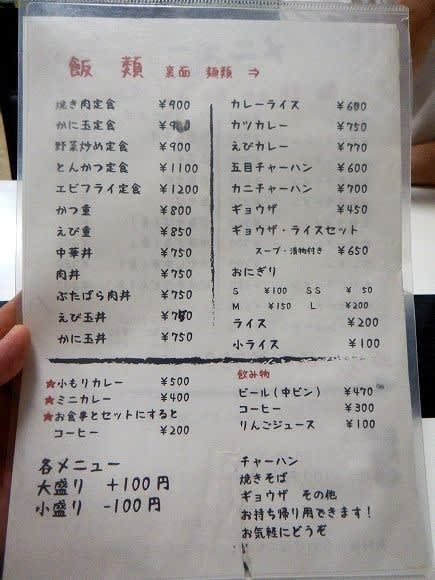 飯 類 裏面 麺類 ⇒
焼き肉定食 ¥900
かに玉定食
野菜炒め定食 ¥900
とんかつ定食 ¥1100
エビフライ定食 ¥1200
かつ重 ¥800
えび重 ¥850
中華丼 ¥750
肉丼 ¥750
ぶたばら肉丼 ¥750
えび玉丼
かに玉丼 ¥750
カレーライス ¥600
カツカレー ¥750
えびカレー ¥770
五目チャーハン ¥600
カニチャーハン ¥700
ギョウザ ¥450
ギョウザ・ライスセット
スープ・漬物付き ¥650
おにぎり
S ¥100 SS ¥ 50
M ¥150 L ¥200
ライス ¥200
小ライス ¥100
★小もりカレー ¥500
★ミニカレー ¥400
★お食事とセットにすると
コーヒー ¥200
飲み物
ビール(中ビン) ¥470
コーヒー ¥300
りんごジュース ¥100
各メニュー
大盛り +100円
小盛り -100円
チャーハン
焼きそば
ギョウザ その他
お持ち帰り用できます!
お気軽にどうぞ